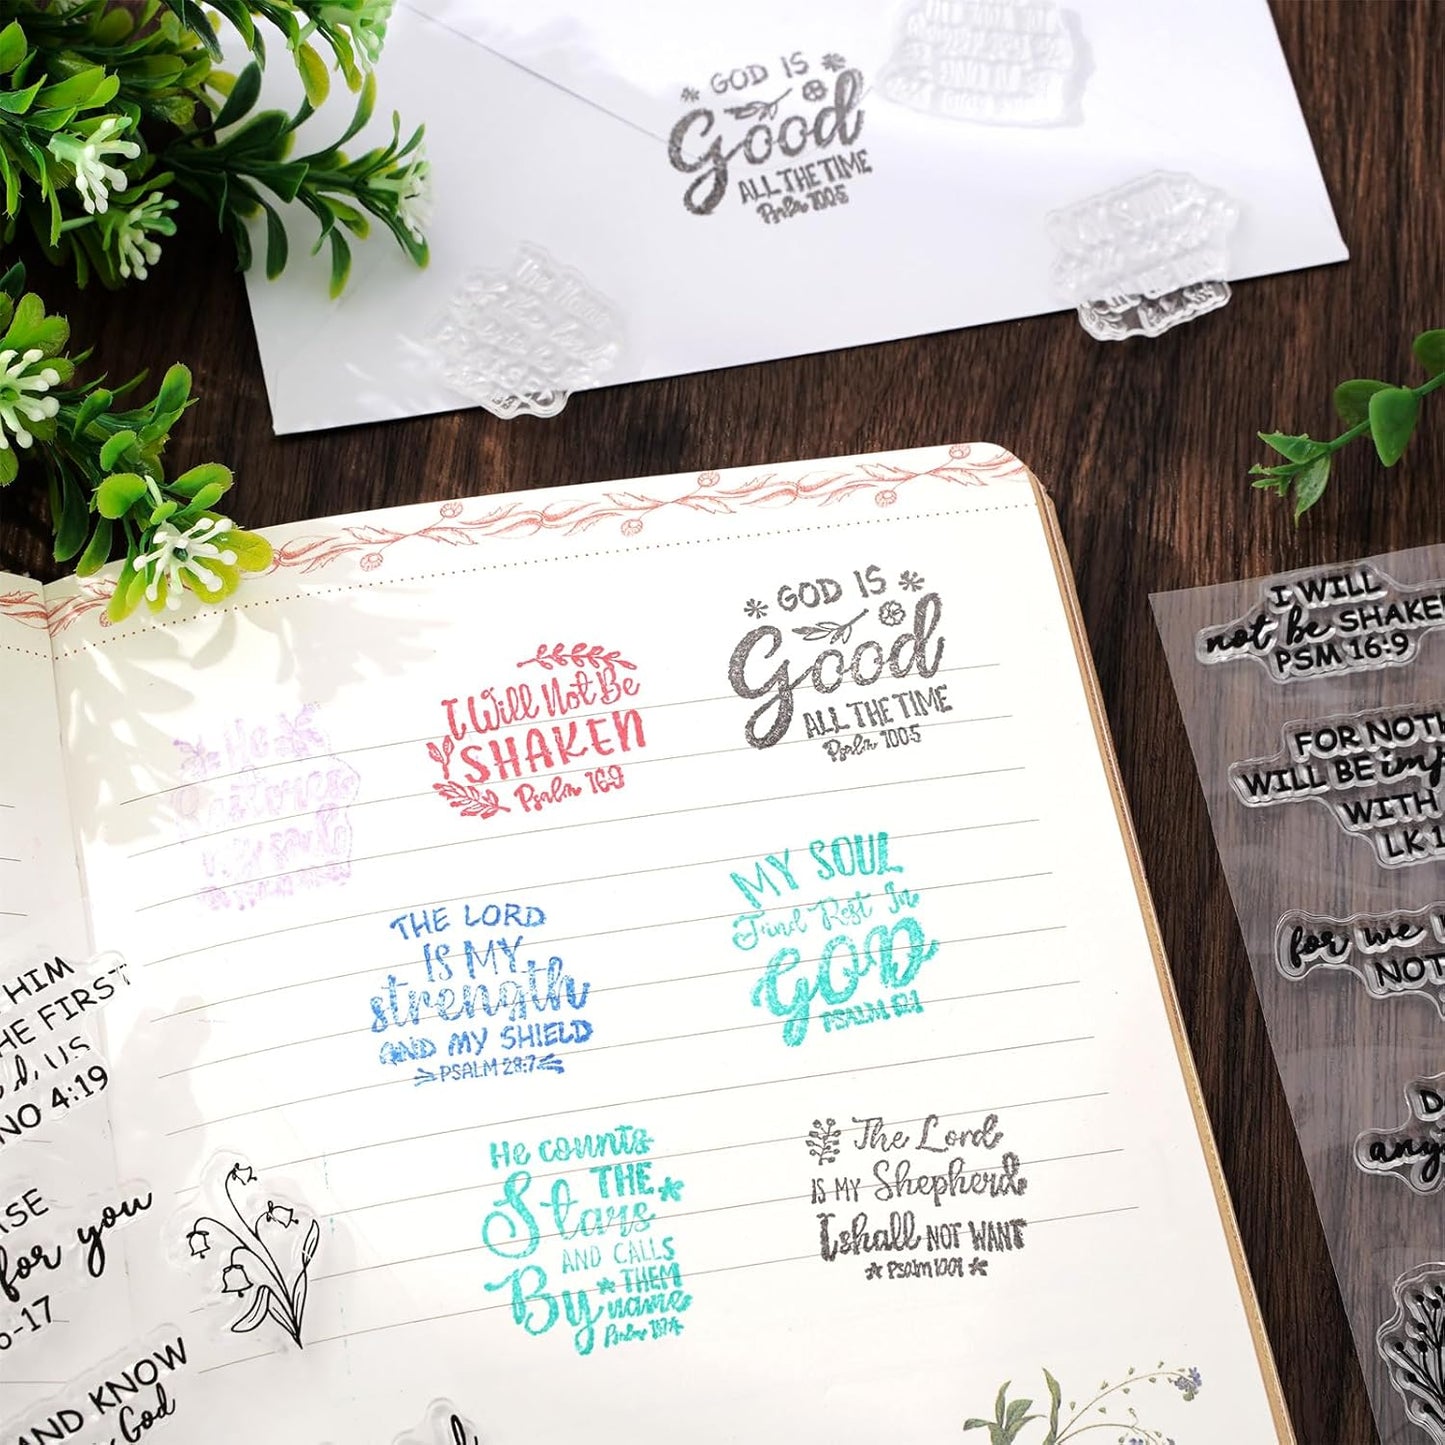 GOD IS
Good
ALL THE TIME
Psalm 100:5
GOD IS
Good
ALL THE TIME
Psalm 100:5
I Will Not Be
SHAKEN
Psalm 16:9
He
Restores
my soul
MY SOUL
Find Rest In
GOD
PSALM
THE LORD
IS MY
strength
AND MY SHIELD
PSALM 28:7
He counts
THE
Stars
AND CALLS
THEM
By name
Psalm
The Lord
IS MY Shepherd
I shall NOT WANT
Psalm
I WILL
not be SHAKEN
PSM 16:9
FOR NOTH
WILL BE imp
WITH
LK 1
for we
NOT
HIM
HE FIRST
US
NO 4:19
for you
-17
AND KNOW
God